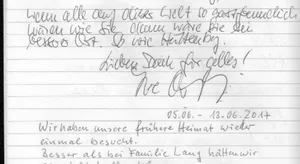 wenn alle auf dieser Welt so gastfreundlich
wären wie Sie, dann wäre sie ein
besserer Ort.
Lieben Dank für Alles!
05.06. - 13.06.2017
Wir haben unsere frühere Heimat wieder
einmal besucht.
Besser als bei Familie Lang hätten wir